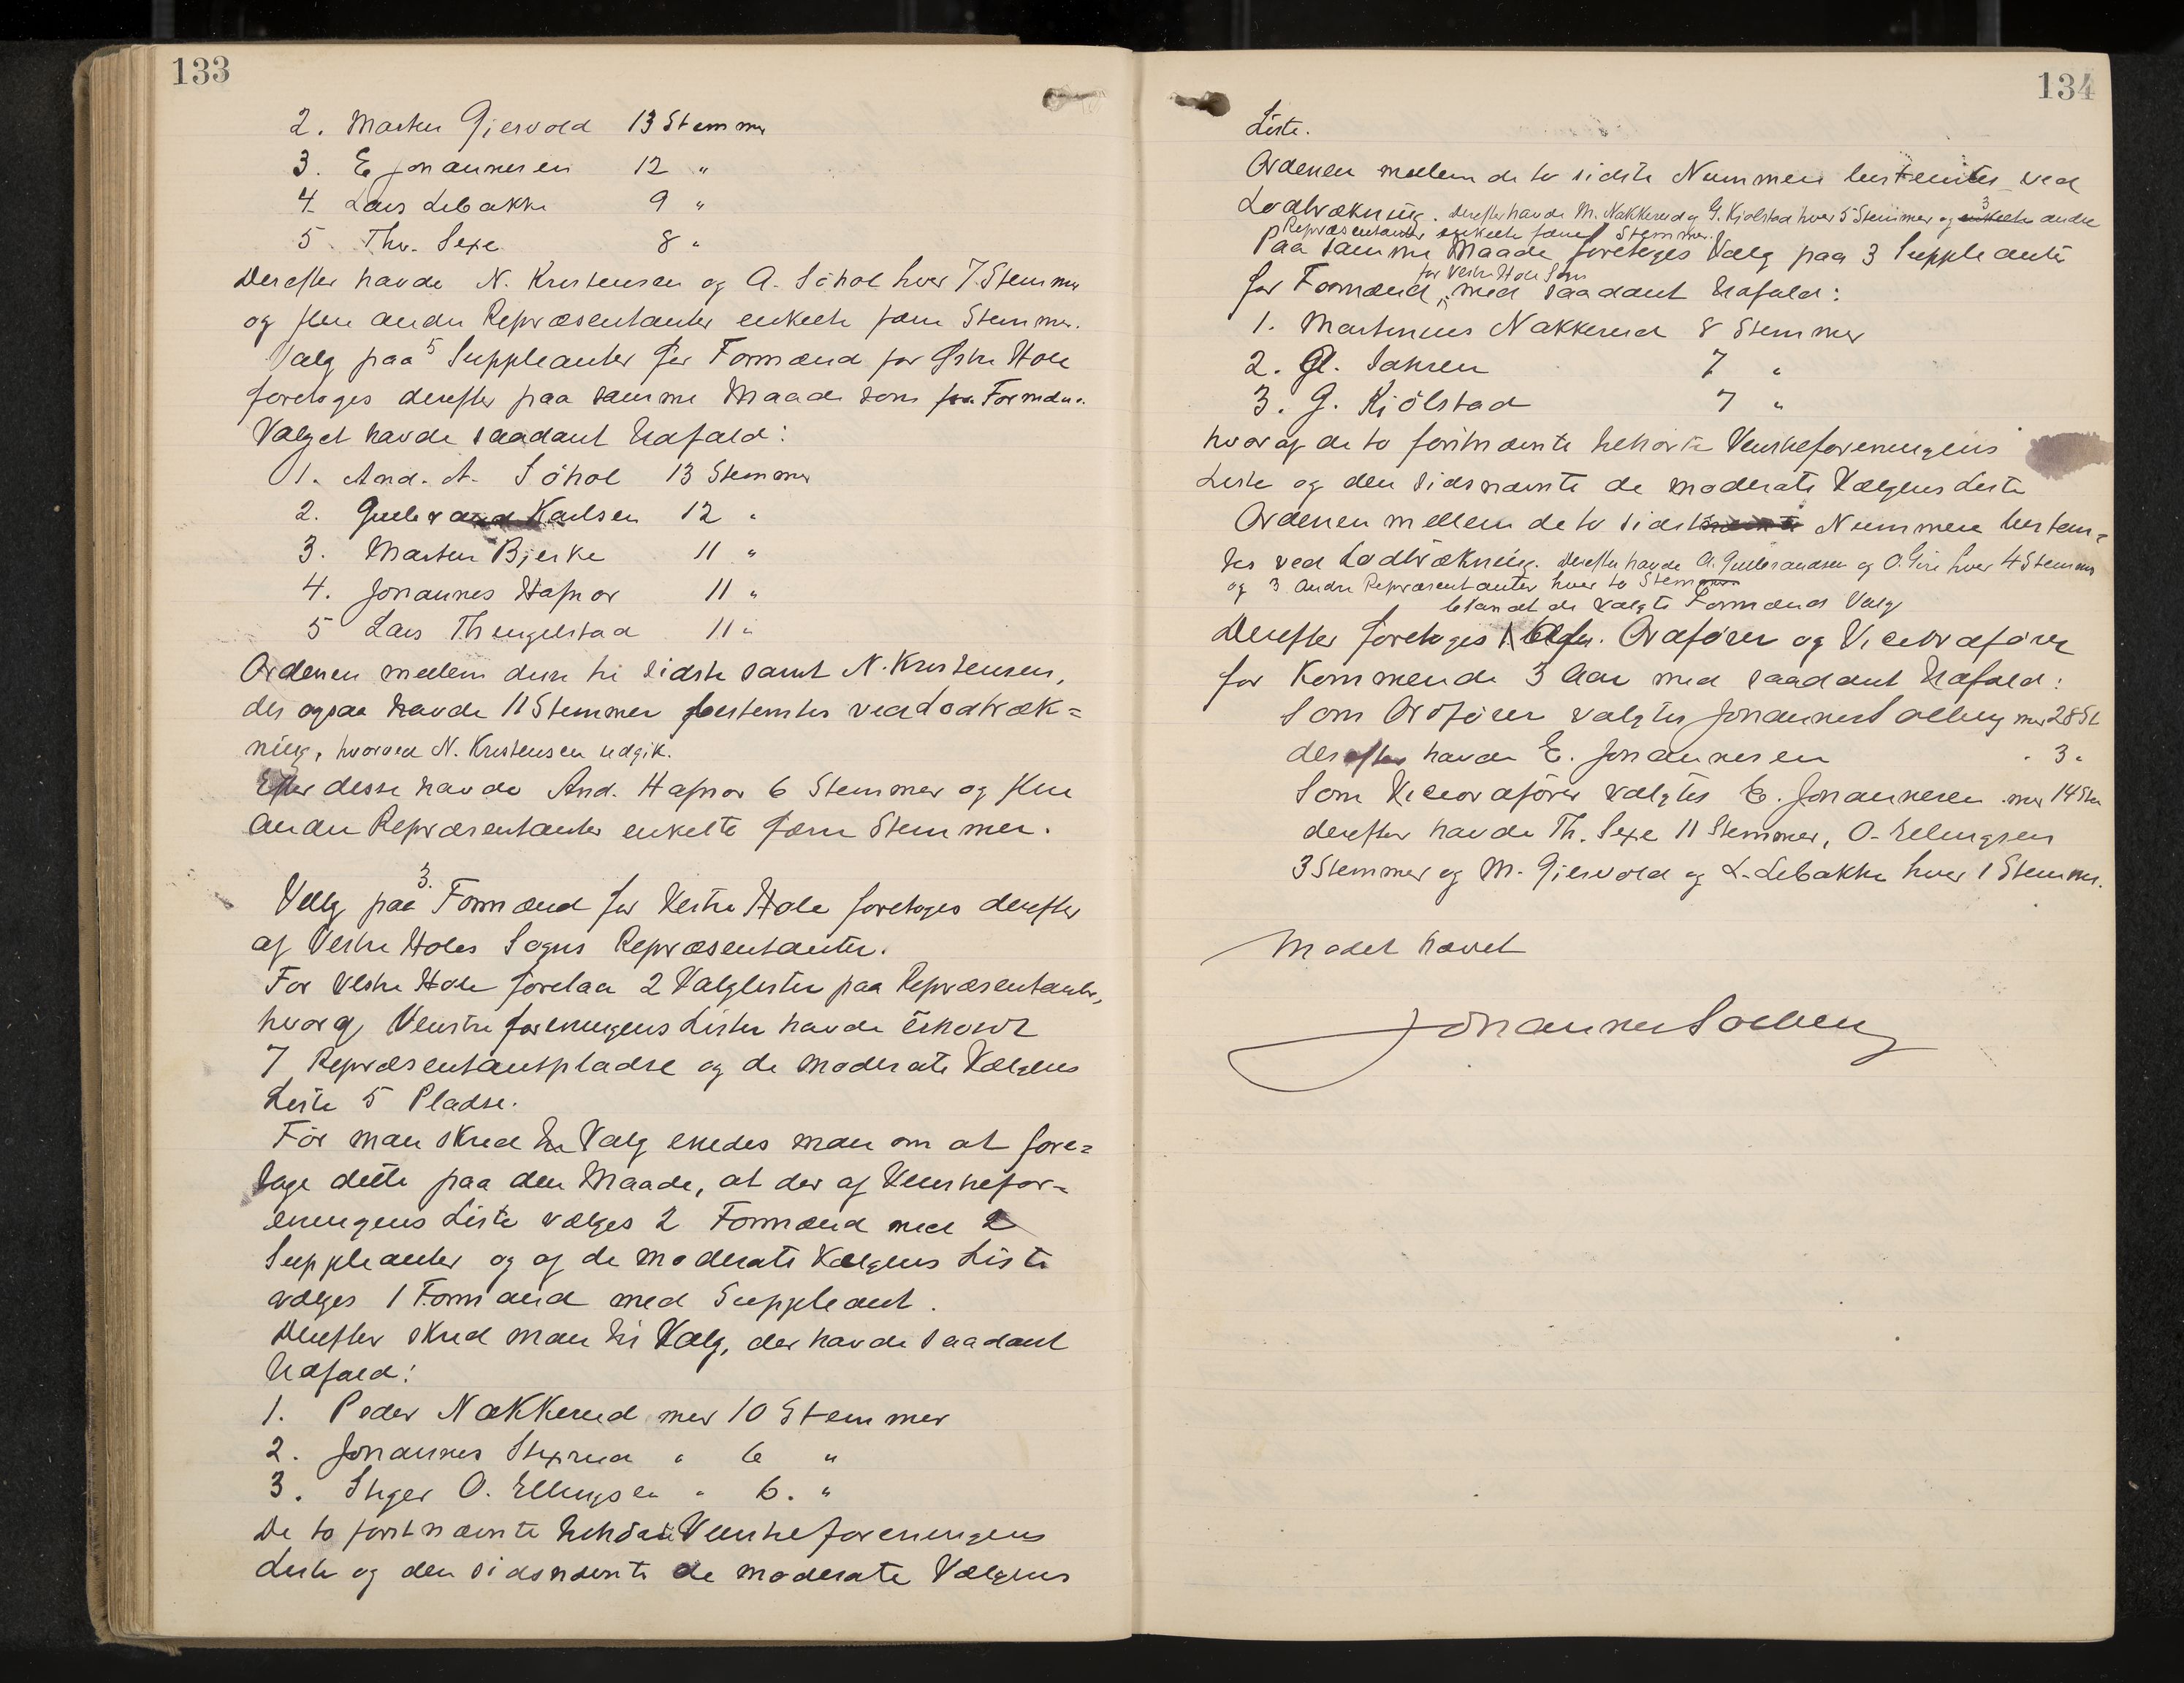 133
2. Martin Gjesvold 13 Stemmer
3. E Johannesen 12 "
4 Lars Libakke 9 "
5 Thv. Sexe 8 "
Derefter havde N. Kristensen og A. Söhol hver 7 Stemmer
og flere andre Repræsentanter enkelte færre Stemmer.
Valg paa 5 Suppleanter for Formænd for Østre Hole
foretoges derefter paa samme Maade som for Formænd.
Valget havde saadant Udfald:
1. And. A. Söhol 13 Stemmer
2. Gulbrand Karlsen 12 "
3. Martin Bjerke 11 "
4. Johannes Hafnor 11 "
5 Lars Thingelstad 11 "
Ordenen mellem disse tre sidste samt N. Kristensen,
der ogsaa havde 11 Stemmer bestemtes ved Lodtræk=
ning, hvorved N. Kristensen udgik.
Efter disse havde And. Hafnor 6 Stemmer og flere
andre Repræsentanter enkelte færre Stemmer.
Valg paa 3 Formænd for Vestre Hole foretoges derefter
af Vestre Holes Sogns Repræsentanter.
For Vestre Hole forelaa 2 Valglister paa Repræsentanter,
hvoraf Venstreforeningens Liste havde erholdt
7 Repræsentantpladse og de moderate Vælgeres
Liste 5 Pladse.
Før man skred til Valg enedes man om at fore=
tage dette paa den Maade, at der af Venstrefor=
eningens Liste vælges 2 Formænd med 2
Suppleanter og af de moderate Vælgeres Liste
vælges 1 Formand med Suppleant.
Derefter skred man til Valg, der havde saadant
Udfald:
1. Peder Nakkerud med 10 Stemmer
2. Johannes " 6 "
3. O. Ellingsen " 6. "
De to førstnævnte tilhørte Venstreforeningens
Liste og den sidsnævnte de moderate Vælgeres
134
Liste.
Ordenen mellem de to sidste Nummere bestemtes ved
Lodtrækning. Derefter havde M. Nakkerud og G. Kjølstad hver 5 Stemmer og 3 enkelte andre
Repræsentanter enkelte færre Stemmer.
Paa samme Maade foretoges Valg paa 3 Suppleanter
for Vestre Hole Sogn
for Formænd, med saadant Udfald:
1. Martinius Nakkerud 8 Stemmer
2. Gl. 7 "
3. G. Kjölstad 7 "
hvoraf de to førstnævnte tilhørte Venstreforeningens
Liste og den sidsnævnte de moderate Vælgeres Liste
Ordenen mellem de to sidste Nummere bestem=
tes ved Lodtrækning. Derefter havde A. Gulbrandsen og O. hver 4 Stemmer
og 3 andre Repræsentanter hver to Stemmer
blandt de valgte Formænd Valg
Derefter foretoges af Ordfører og Viceordfører
for kommende 3 Aar med saadant Udfald:
Som Ordfører valgtes Johannes Solberg med 28 St
derefter havde E. Johannesen " 3 "
Som Viceordfører valgtes E. Johannesen med 14 Ste
derefter havde Th. Sexe 11 Stemmer, O. Ellingsen
3 Stemmer og M. Gjesvold og L. Libakke hver 1 Stemme.
Mødet hævet
Johannes Solberg